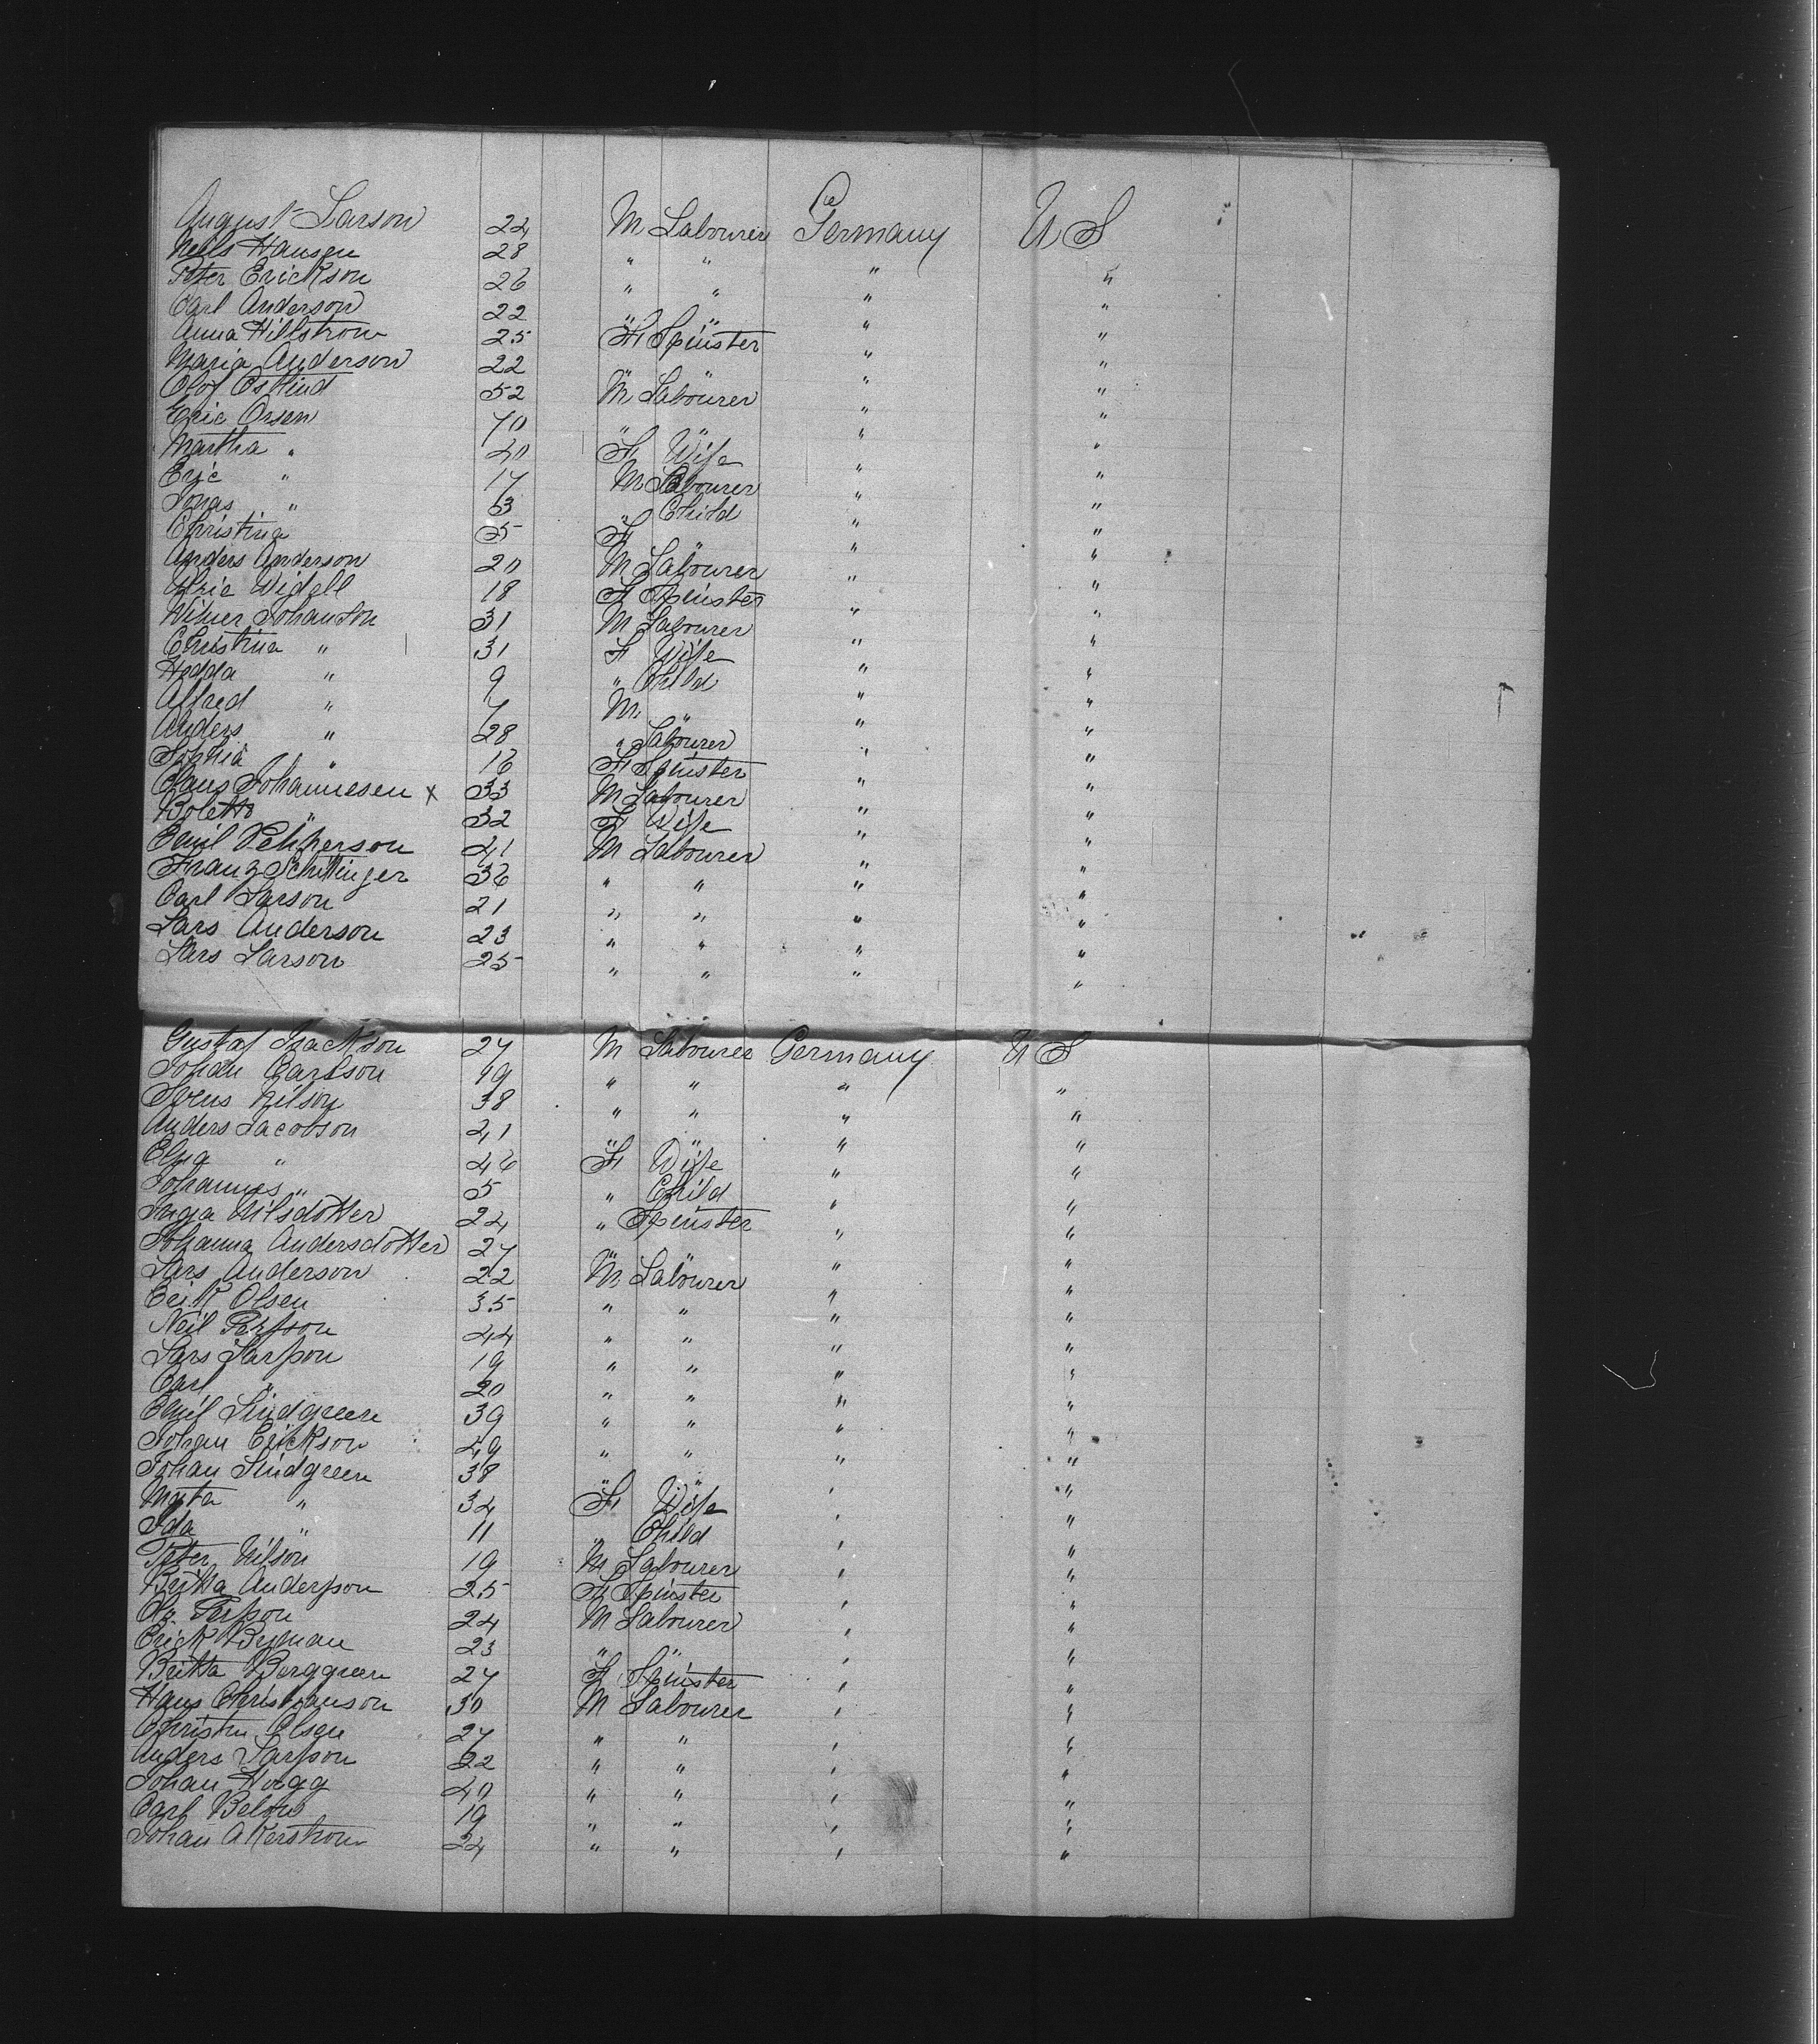 August Larson 24 M Labourer Germany U S
Nells Hansen 28 " " " "
Peter Erickson 26 " " " "
Carl Anderson 22 " " " "
Anna Hillstrom 25 F Spinster " "
Maria Anderson 22 " " " "
Olof Ostlind 52 M Labourer " "
Eric Orsen 40 " " " "
Martha " 40 F Wife " "
Eric " 17 M Labourer " "
Jonas " 3 " Child " "
Christina 5 F " " "
Anders Anderson 20 M Labourer " "
Widell 18 F Spinster " "
Johanson 31 M Labourer " "
Christina " 31 F Wife " "
Hedda " 9 " Child " "
Alfred " 7 M " " "
Anders " 28 " Labourer " "
Sophia " 16 F Spinster " "
Claus Johannesen x 33 M Labourer " "
Bolette " 32 F Wife " "
Emil Petterson 41 M Labourer " "
Franz Schittinger 36 " " " "
Carl Larson 21 " " " "
Lars Anderson 23 " " " "
Lars Larson 25 " " " "
Gustaf Isackson 27 M Labourer Germany U S
Johan Carlson 19 " " " "
Svens Nilson 38 " " " "
Anders Jacobson 41 " " " "
Elna " 46 F Wife " "
Johannes " 5 " Child " "
Inga Nilsdotter 24 " Spinster " "
Johanna Andersdotter 27 " " " "
Lars Anderson 22 M Labourer " "
Erik Olsen 35 " " " "
Neil Persson 44 " " " "
Lars Larsson 19 " " " "
Carl " 20 " " " "
Emil Lindgreen 39 " " " "
Johan Erickson 49 " " " "
Johan Lindgreen 38 " " " "
Marta " 34 F Wife " "
Ida " 11 " Child " "
Peter Nilson 19 M Labourer " "
Britta Andersson 25 F Spinster " "
Ole Persson 24 M Labourer " "
Erick Byman 23 " " " "
Britta Berggreen 27 F Spinster " "
Hans Christianson 30 M Labourer " "
Christn Olsen 27 " " " "
Anders Larsson 22 " " " "
Johan Hoegg 40 " " " "
Carl Below 19 " " " "
Johan Akerstrom 24 " " " "